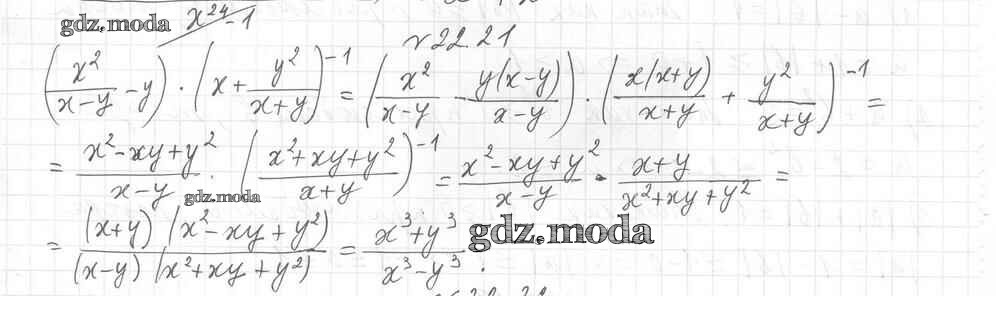 gdz.moda x^24 - 1
N 22.21
(x^2/(x-y) - y) · (x + y^2/(x+y))^-1 = (x^2/(x-y) - y(x-y)/(x-y)) · (x(x+y)/(x+y) + y^2/(x+y))^-1 =
= (x^2-xy+y^2)/(x-y) · ((x^2+xy+y^2)/(x+y))^-1 = (x^2-xy+y^2)/(x-y) · (x+y)/(x^2+xy+y^2) =
gdz.moda
= (x+y)(x^2-xy+y^2)/((x-y)(x^2+xy+y^2)) = (x^3+y^3)/(x^3-y^3). gdz.moda